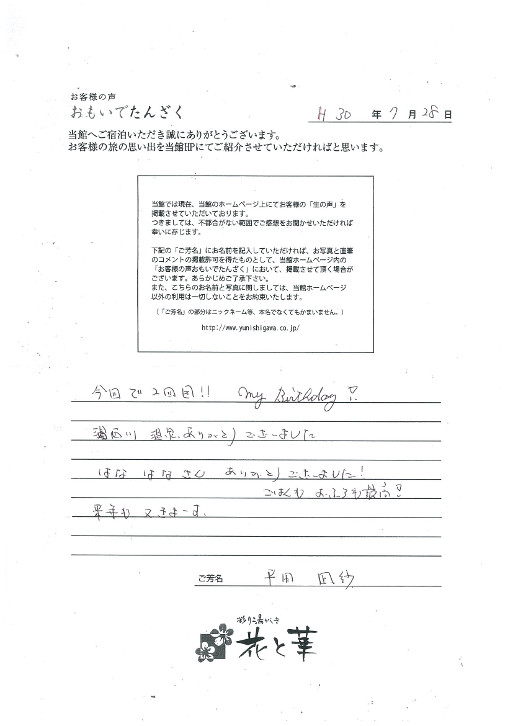 お客様の声
おもいでたんざく
H 30 年 7 月 28 日
当館へご宿泊いただき誠にありがとうございます。
お客様の旅の思い出を当館HPにてご紹介させていただければと思います。
当館では現在、当館のホームページ上にてお客様の「生の声」を
掲載させていただいております。
つきましては、不都合がない範囲でご感想をお聞かせいただければ
幸いに存じます。
下記の「ご芳名」にお名前を記入していただければ、お写真と直筆
のコメントの掲載許可を得たものとして、当館ホームページ内の
「お客様の声おもいでたんざく」において、掲載させて頂く場合が
ございます。あらかじめご了承下さい。
また、こちらのお名前と写真に関しましては、当館ホームページ
以外の利用は一切しないことをお約束いたします。
(「ご芳名」の部分はニックネーム等、本名でなくてもかまいません。)
http://www.yunishigawa.co.jp/
今回で2回目!! My Birthday!
湯西川 温泉、ありがとうございました
はな はなさん ありがとうございました!
ごはんも おふろも最高!
来年も 又きまーす。
ご芳名 平田
彩り湯かしき
花と華